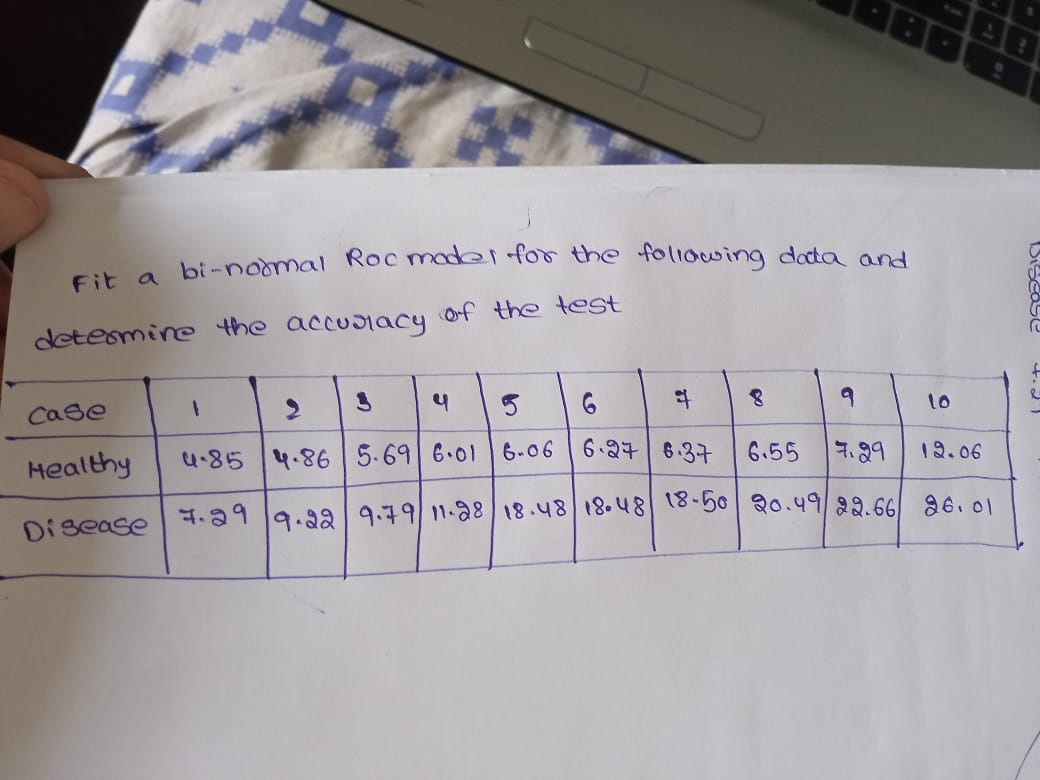 Fit a bi-normal Roc model for the following data and
determine the accuracy of the test
case 1 2 3 4 5 6 7 8 9 10
Healthy 4.85 4.86 5.69 6.01 6.06 6.27 6.37 6.55 7.29 12.06
Disease 7.29 9.22 9.79 11.28 18.48 18.48 18.50 20.49 22.66 26.01
Disease